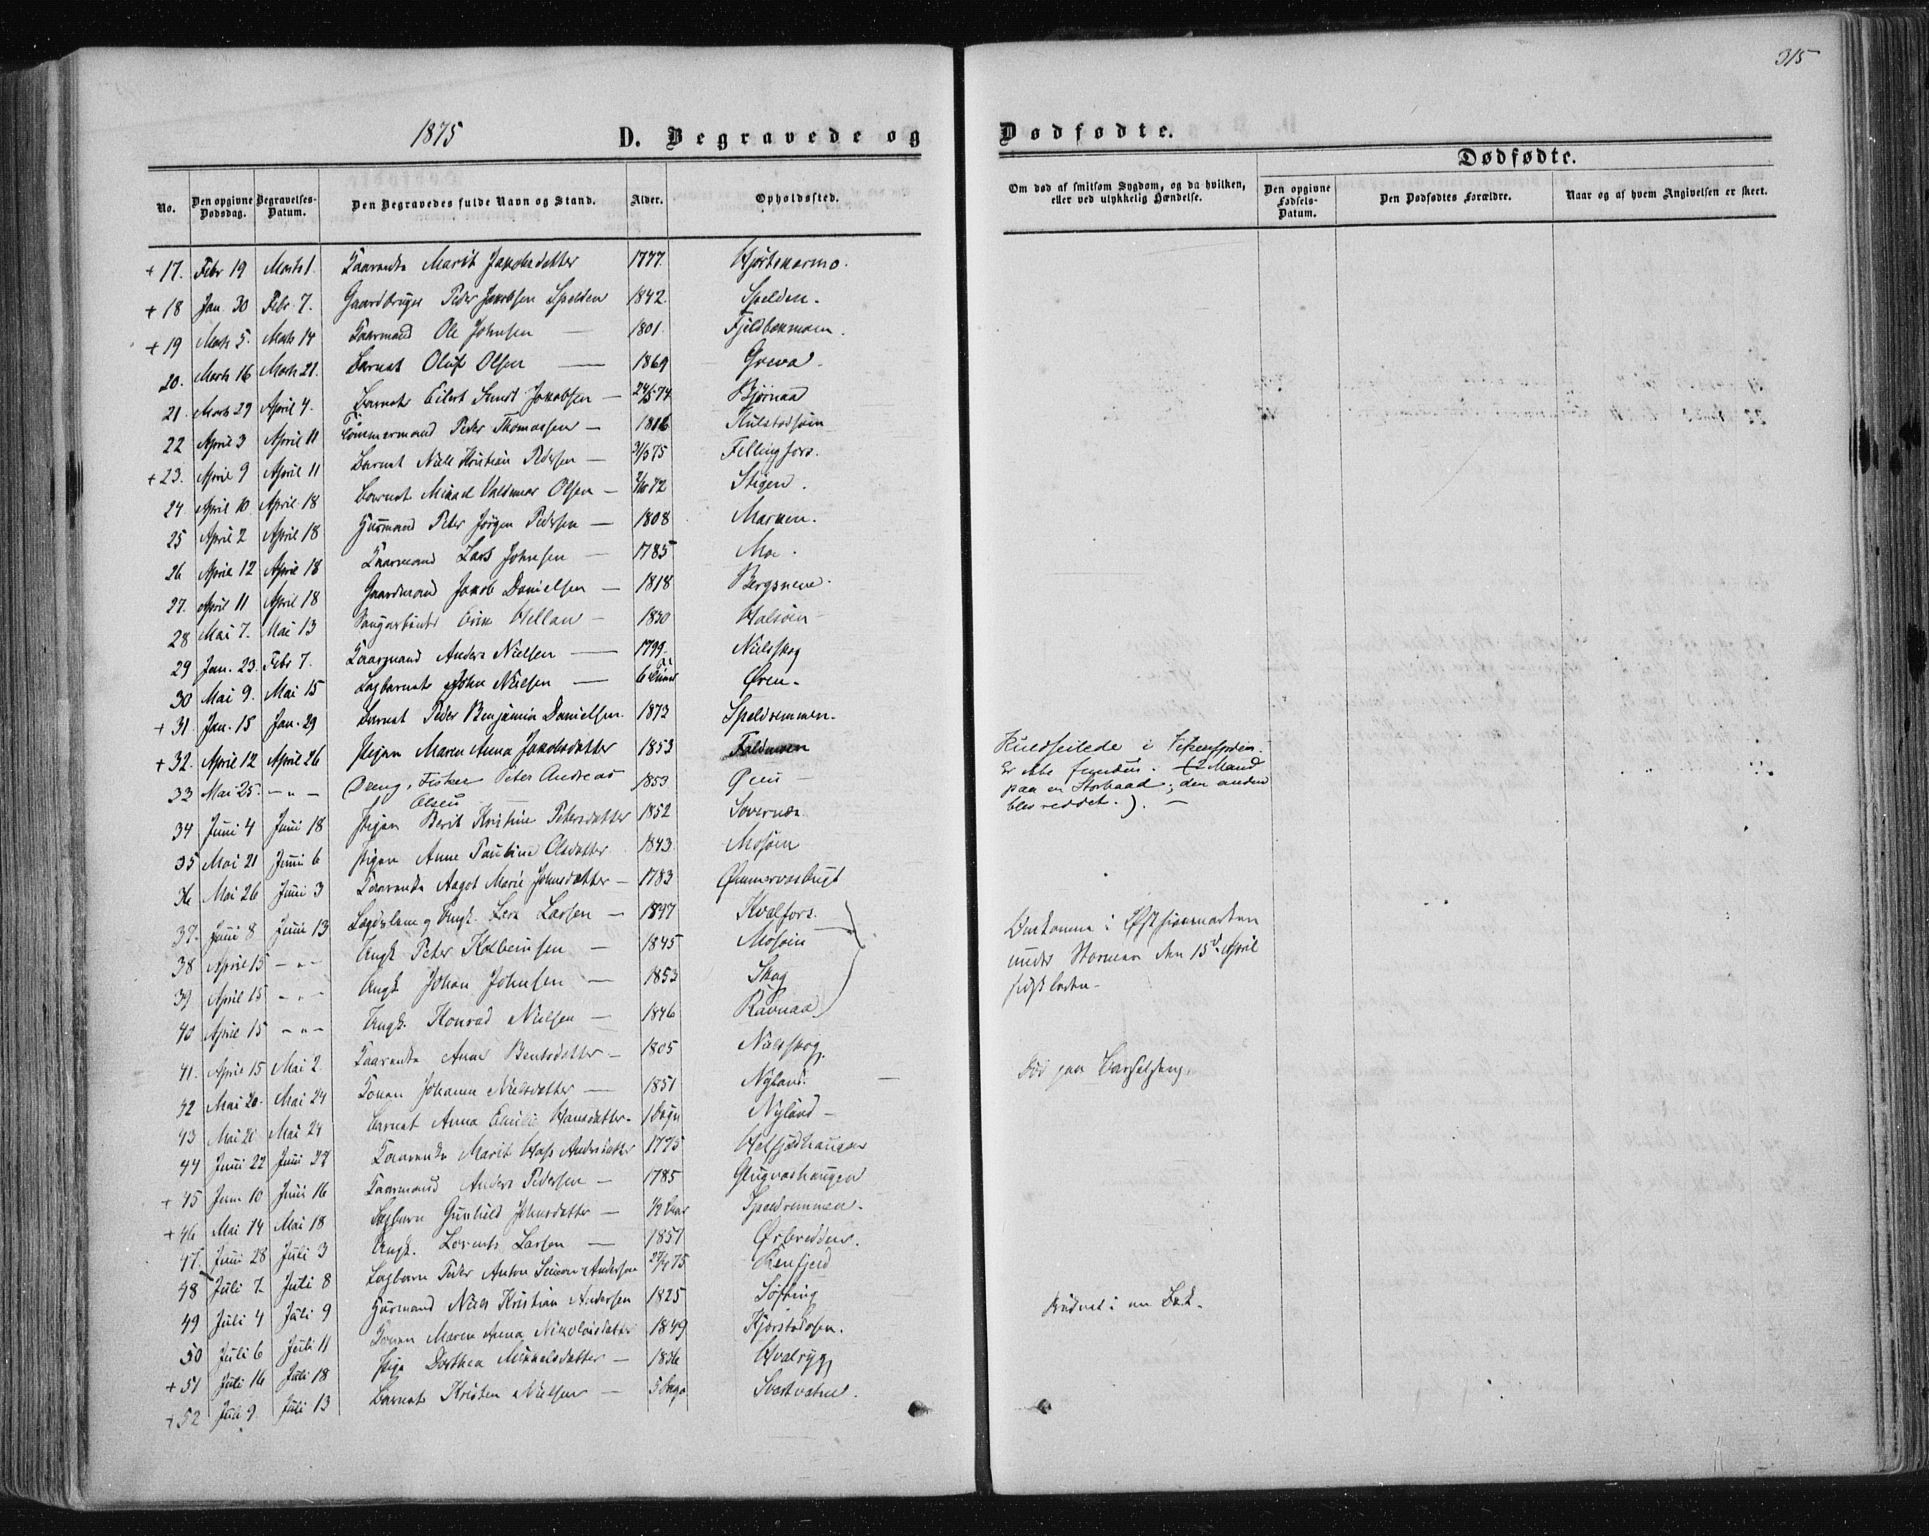 315
1875 D. Begravede og Dødfødte.
Dødfødte.
No. Den opgivne Dødsdag. Begravelses-Datum. Den Begravedes fulde Navn og Stand. Alder. Opholdssted. Om død af smitsom Sygdom, og da hvilken, eller ved ulykkelig Hændelse. Den opgivne Fødsels-Datum. Den Dødfødtes Forældre. Naar og af hvem Angivelsen er skeet.
+ 17. Febr 19 Marts 1. Kaarenke Marit Jakobsdatter 1777. Hjortskarmo.
+ 18 Jan. 30 Febr 7. Gaardbruger Peder Jakobsen Spelden 1842. Spelden.
+ 19 Marts 5. Marts 14 Kaarmand Ole Johnsen — 1801. Fjeldbekmoen.
20. Marts 16 Marts 21. Barnet Oluf Olsen — 1869 Greva.
21. Marts 29 April 4. Barnet Eilert Sundt Jakobsen — 24/5 74 Bjørnaa
22 April 3 April 11 Tømmermand Peder Thomassen — 1816 Kulstadsøen
+ 23. April 9 April 11 Barnet Niels Kristian Pedersen — 75 Fellingfors.
24. April 10 April 18 Barnet Mikael Valdemar Olsen — 72 Stigen.
25 April 2 April 18 Huusmand Peter Jørgen Pedersen — 1808 Marken.
26 April 12 April 18 Kaarmand Lars Johnsen — 1785 Moe.
27. April 11 April 18 Gaardmand Jakob Danielsen — 1818 Bergsnene.
28 Mai 7. Mai 13 Erik Hellan — 1830 Halsøen
29 Jan. 23. Febr 7. Kaarmand Anders Nielsen — 1799. Nielsskog
30 Mai 9. Mai 15 Lagbarnet John Nielsen — 6 Øren.
+ 31. Jan. 15 Jan. 29 Barnet Peder Benjamin Danielsen. 1873 Speldremmen.
+ 32. April 12 April 26 Pigen Maren Anna Jakobsdatter 1853
33 Mai 25. — " — Dreng, Fisker Peter Andreas Olsen 1853 Øren — Kuldseilede i Vefsenfjorden. Er ikke funden. (2 Mand paa en Storbaad; den anden blev reddet.). —
34 Juni 4 Juni 18 Pigen Berit Kristine Petersdatter 1852 Sovernæs
35 Mai 21 Juni 6 Pigen Anne Pauline Olsdatter 1843. Mosøen
36 Mai 26 Juni 3 Kaarenke Aagot Marie Johnsdatter — 1783 Ømmervasbugt
37. Juni 8 Juni 13 Lars Larsen — Kvalfors.
38 April 15 — " — Ungk Peter Kolbeinsen — 1845 Mosøen
39 April 15 — " — Ungk Johan Johnsen — 1853 Skog
40 April 15 — " — Ungk. Konrad Nielsen — 1846 Ravnaa
Omkomne i Østfinmarken under Stormen den 15de April
41. April 15 Mai 2. Kaarenke Anne Bentsdatter — 1805 Nielsskog.
42 Mai 20. Mai 24 Konen Johanna Nielsdatter — 1851 Nyland. — Død paa Barselseng.
43 Mai 21 Mai 24 Barnet Anna Emilie Hansdatter — 1 Døgn Nyland —
44 Juni 22 Juni 27 Kaarenke Marit Andersdatter 1775 Helfjeldhaugen
+ 45 Juni 10 Juni 16 Kaarmand Anders Pedersen — 1785 Glugvashaugen
+ 46 Mai 14 Mai 18 Lagbarn Gunhild Johnsdatter — ½ Aar Speldremmen.
47. Juni 28 Juli 3 Ungk. Lorents Larsen — 1857
48 Juli 7 Juli 8 Lagbarn Peder Anton Simon Andersen 75
49 Juli 4 Juli 9 Huusmand Niels Kristian Andersen 1825 Søfting Druknet i en Bæk.
50 Juli 6 Juli 11 Konen Maren Anna Nikolaisdatter 1849 Kjørstadosen.
+ 51 Juli 16 Juli 18 Pige Dorthea Mikkelsdatter — 1836 Hvalryg
+ 52 Juli 9. Juli 13 Barnet Kristen Nielsen — 5 Dage Svartvatne.